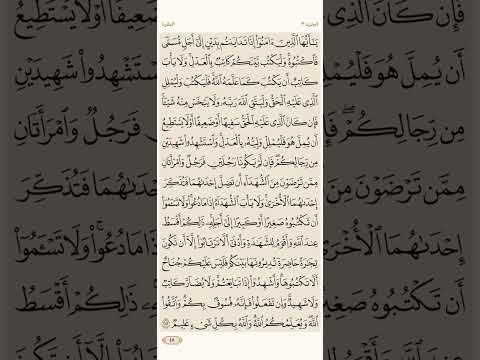 الجزء ٣
البقرة
يَٰٓأَيُّهَا ٱلَّذِينَ ءَامَنُوٓاْ إِذَا تَدَايَنتُم بِدَيْنٍ إِلَىٰٓ أَجَلٖ مُّسَمّٗى
فَٱكْتُبُوهُۚ وَلْيَكْتُب بَّيْنَكُمْ كَاتِبُۢ بِٱلْعَدْلِۚ وَلَا يَأْبَ
كَاتِبٌ أَن يَكْتُبَ كَمَا عَلَّمَهُ ٱللَّهُۚ فَلْيَكْتُبْ وَلْيُمْلِلِ
ٱلَّذِي عَلَيْهِ ٱلْحَقُّ وَلْيَتَّقِ ٱللَّهَ رَبَّهُۥ وَلَا يَبْخَسْ مِنْهُ شَيْـٔٗاۚ
فَإِن كَانَ ٱلَّذِي عَلَيْهِ ٱلْحَقُّ سَفِيهًا أَوْ ضَعِيفًا أَوْ لَا يَسْتَطِيعُ
أَن يُمِلَّ هُوَ فَلْيُمْلِلْ وَلِيُّهُۥ بِٱلْعَدْلِۚ وَٱسْتَشْهِدُواْ شَهِيدَيْنِ
مِن رِّجَالِكُمْۖ فَإِن لَّمْ يَكُونَا رَجُلَيْنِ فَرَجُلٞ وَٱمْرَأَتَانِ
مِمَّن تَرْضَوْنَ مِنَ ٱلشُّهَدَآءِ أَن تَضِلَّ إِحْدَىٰهُمَا فَتُذَكِّرَ
إِحْدَىٰهُمَا ٱلْأُخْرَىٰۚ وَلَا يَأْبَ ٱلشُّهَدَآءُ إِذَا مَا دُعُواْۚ وَلَا تَسْـَٔمُوٓاْ
أَن تَكْتُبُوهُ صَغِيرًا أَوْ كَبِيرًا إِلَىٰٓ أَجَلِهِۦۚ ذَٰلِكُمْ أَقْسَطُ
عِندَ ٱللَّهِ وَأَقْوَمُ لِلشَّهَٰدَةِ وَأَدْنَىٰٓ أَلَّا تَرْتَابُوٓاْ إِلَّآ أَن تَكُونَ
تِجَٰرَةً حَاضِرَةٗ تُدِيرُونَهَا بَيْنَكُمْ فَلَيْسَ عَلَيْكُمْ جُنَاحٌ
أَلَّا تَكْتُبُوهَاۗ وَأَشْهِدُوٓاْ إِذَا تَبَايَعْتُمْۚ وَلَا يُضَآرَّ كَاتِبٞ
وَلَا شَهِيدٞۚ وَإِن تَفْعَلُواْ فَإِنَّهُۥ فُسُوقُۢ بِكُمْۗ وَٱتَّقُواْ
ٱللَّهَۖ وَيُعَلِّمُكُمُ ٱللَّهُۗ وَٱللَّهُ بِكُلِّ شَيْءٍ عَلِيمٞ ٢٨٢
٤٨